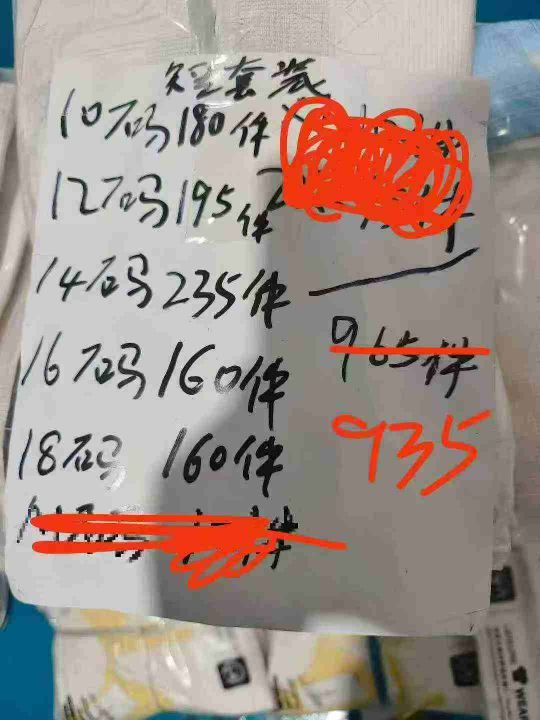 短套装
10码180件
12码195件
14码235件
16码160件
18码 160件
965件
935